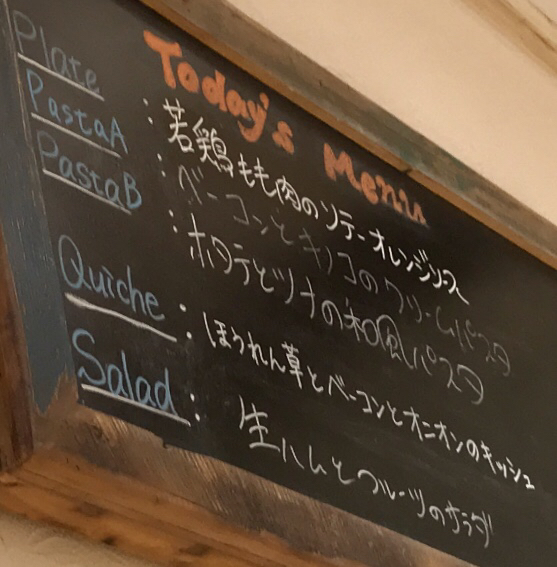 Today's Menu
Plate : 若鶏もも肉のソテーオレンジソース
PastaA : ベーコンとキノコのクリームパスタ
PastaB : ホタテとツナの和風パスタ
Quiche : ほうれん草とベーコンとオニオンのキッシュ
Salad : 生ハムとフルーツのサラダ